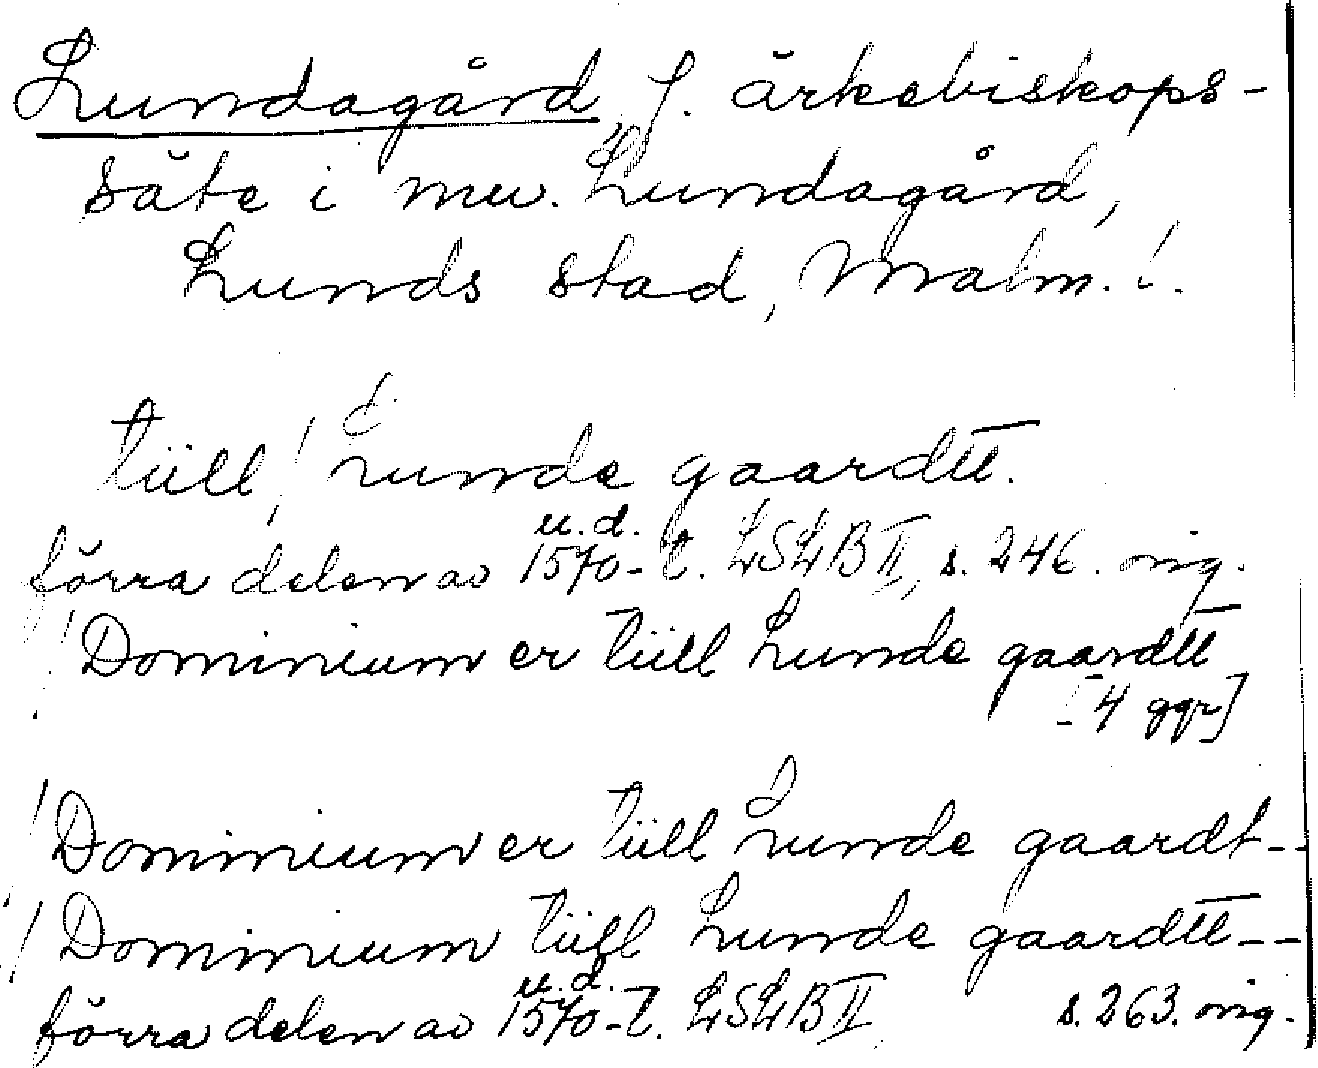 Lundagård, f. ärkebiskops-
säte i nuv. Lundagård,
Lunds stad, Malm. l.
tüll / Lunde gaardtt.
förra delen av 1570-t. u.d. LSLB II, s. 246. orig.
/ Dominium er tüll Lunde gaardtt
[4 ggr]
/ Dominium er tüll Lunde gaardt--
/ Dominium tüll Lunde gaardtt--
förra delen av 1570-t. u.d. LSLB II s. 263. orig.